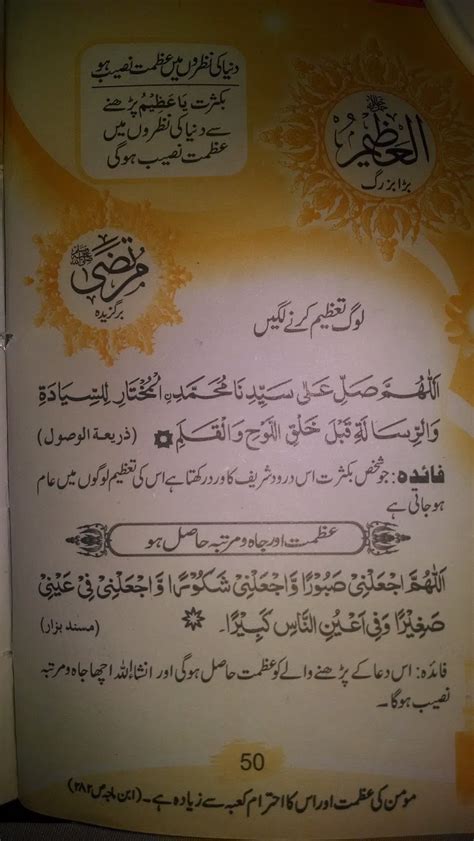 دنیا کی نظروں میں عظمت نصیب ہو
بکثرت یَا عَظِیْمُ پڑھنے
سے دنیا کی نظروں میں
عظمت نصیب ہوگی
العظیم
بڑا بزرگ
مرتضی ﷺ
برگزیدہ
لوگ تعظیم کرنے لگیں
اَللّٰهُمَّ صَلِّ عَلٰی سَیِّدِنَا مُحَمَّدِنِ الْمُخْتَارِ لِلسِّیَادَةِ
وَالرِّسَالَةِ قَبْلَ خَلْقِ اللَّوْحِ وَالْقَلَمِ (ذریعة الوصول)
فائدہ: جو شخص بکثرت اس درود شریف کا ورد رکھتا ہے اس کی تعظیم لوگوں میں عام
ہو جاتی ہے
عظمت اور جاہ و مرتبہ حاصل ہو
اَللّٰهُمَّ اجْعَلْنِیْ صَبُوْرًا وَّاجْعَلْنِیْ شَكُوْرًا وَّاجْعَلْنِیْ فِیْ عَیْنِیْ
صَغِیْرًا وَّفِیْ اَعْیُنِ النَّاسِ كَبِیْرًا۔ (مسند بزار)
فائدہ: اس دعا کے پڑھنے والے کو عظمت حاصل ہوگی اور انشاءاللہ اچھا جاہ و مرتبہ
نصیب ہوگا۔
50
مؤمن کی عظمت اور اس کا احترام کعبہ سے زیادہ ہے۔ (ابن ماجہ ص ۲۸۲)